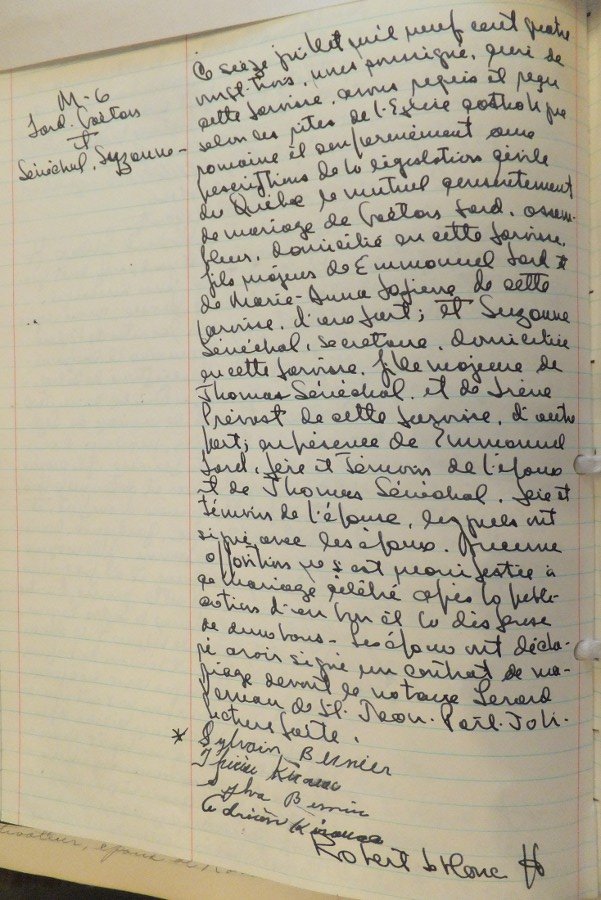 M-6
Lord. Gaétan
et
Sénéchal, Suzanne -
Ce seize juillet mil neuf cent quatre
vingt-trois, nous soussigné, curé de
cette paroisse, avons requis et reçu
selon les rites de l'Eglise catholique
romaine et conformément aux
prescriptions de la législation civile
du Québec le mutuel consentement
de mariage de Gaétan Lord,
domicilié en cette paroisse,
fils majeur de Emmanuel Lord et
de Marie-Anna de cette
paroisse, d'une part; et Suzanne
Sénéchal, secrétaire, domiciliée
en cette paroisse, fille majeure de
Thomas Sénéchal, et de Irène
Prévost de cette paroisse, d'autre
part; en présence de Emmanuel
Lord, père et témoin de l'époux
et de Thomas Sénéchal, père et
témoin de l'épouse, lesquels ont
signé avec les époux. Aucune
opposition ne s'est manifestée à
ce mariage célébré après la publi-
cation d'un ban et la dispense
de deux bans - Les époux ont décla-
ré avoir signé un contrat de ma-
riage devant le notaire
de St. Jean-Port-Joli.
Lecture faite.
* Sylvain Bernier
Kirouac
Sylva Bernier
Adrien Kirouac
Robert